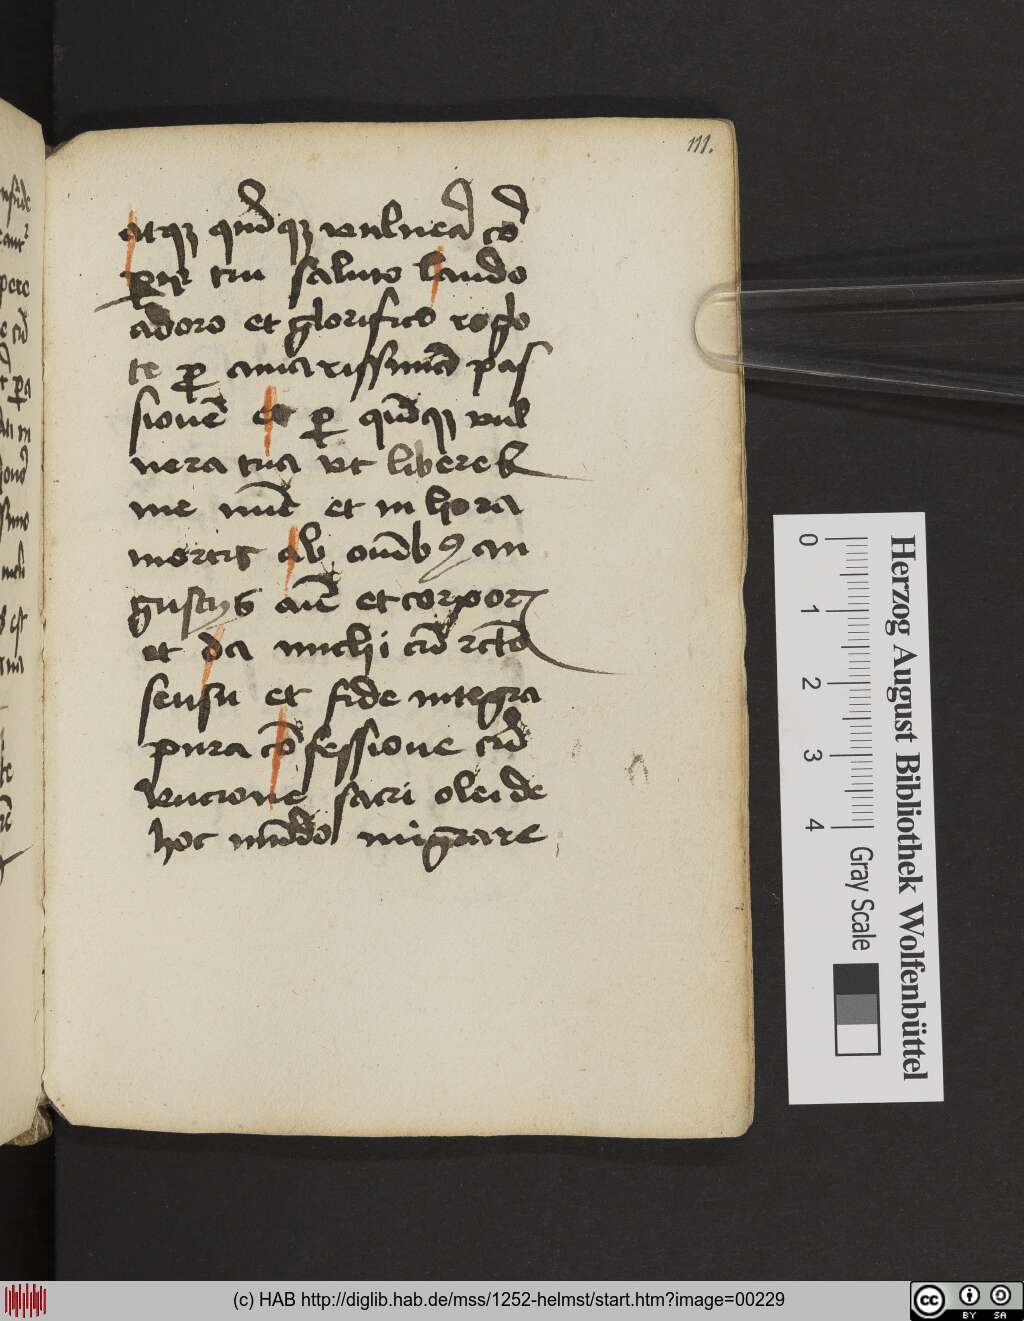 111.
atqꝫ qn̄dqꝫ vulnea cō
ꝑis tui saluto laudo
adoro et glorifico rogo
te ꝑ amarissimā pas
sionē et ꝑ qn̄dqꝫ vul
nera tua vt liberes
me nūc et in hora
mortis ab om̄ibꝫ an
gustijs aīe et corporis
et da michi cū rcto
sensu et fide integra
pura cōfessione cū
vnctione sacri olei de
hoc mūdo migrare
Herzog August Bibliothek Wolfenbüttel
0 1 2 3 4 Gray Scale
(c) HAB http://diglib.hab.de/mss/1252-helmst/start.htm?image=00229
cc BY SA